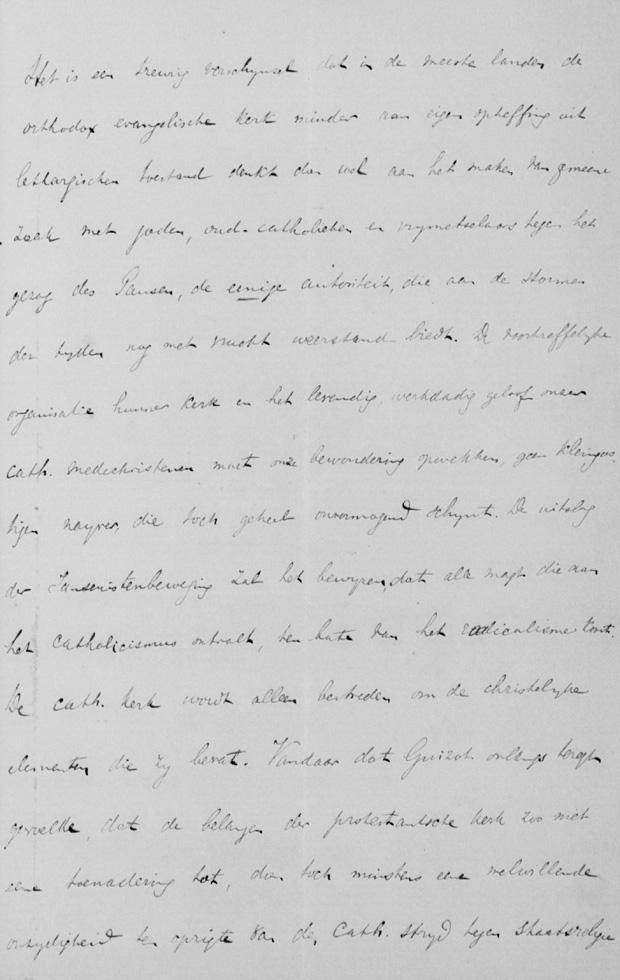 Het is een treurig verschynsel dat in de meeste landen de
orthodox evangelische kerk minder aan eigen opheffing uit
lethargischen toestand denkt dan wel aan het maken van gemeene
zaak met joden, oud-catholieken en vrymetselaars tegen het
gezag des Pausen, de eenige autoriteit, die aan de stormen
der tyden nog met kracht weerstand biedt. De voortreffelyke
organisatie hunner kerk en het levendig, werkdadig geloof onzer
cath. medechristenen moet onze bewondering opwekken, geen kleingees-
tigen nayver, die toch geheel onvermogend schynt. De uitslag
der Jansenistenbeweging zal het bewyzen, dat alle magt die aan
het catholicismus ontvalt, ten bate van het radicalisme komt.
De cath. kerk wordt alleen bestreden om de christelyke
elementen die zy bevat. Vandaar dat Guizot onlangs teregt
gevoelde, dat de belangen der protestantsche kerk zoo niet
eene toenadering tot, dan toch minstens eene welwillende
onzydigheid ten opzigte van den cath. stryd tegen staatsreligie